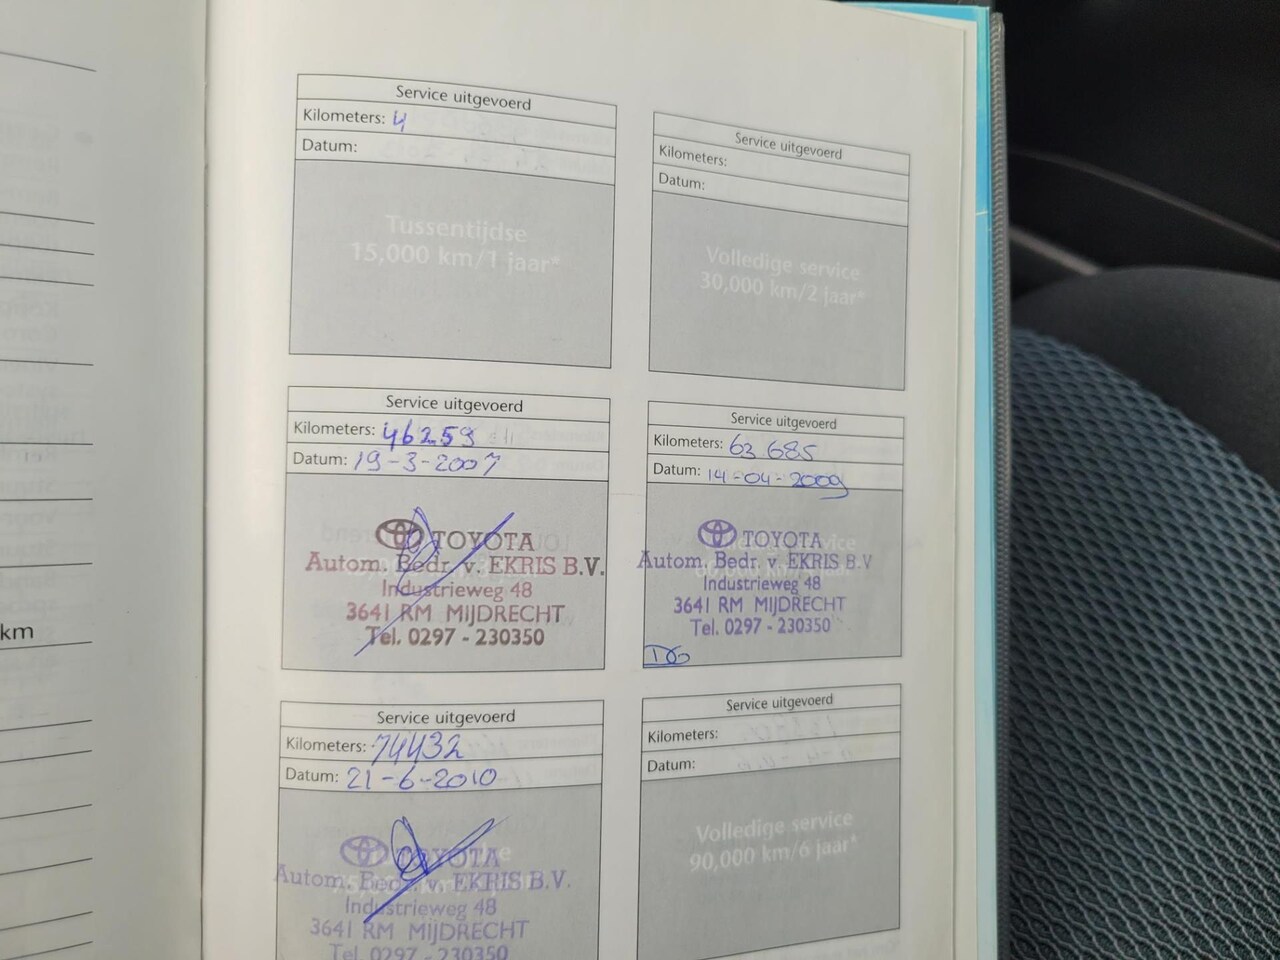 Service uitgevoerd
Kilometers: 4
Datum:
Tussentijdse
15,000 km/1 jaar*
Service uitgevoerd
Kilometers:
Datum:
Volledige service
30,000 km/2 jaar*
Service uitgevoerd
Kilometers: 46259
Datum: 19-3-2007
TOYOTA
Autom. Bedr. v. EKRIS B.V.
Industrieweg 48
3641 RM MIJDRECHT
Tel. 0297 - 230350
Service uitgevoerd
Kilometers: 63 685
Datum: 14-04-2009
TOYOTA
Autom. Bedr. v. EKRIS B.V
Industrieweg 48
3641 RM MIJDRECHT
Tel. 0297 - 230350
km
Service uitgevoerd
Kilometers: 74432
Datum: 21-6-2010
TOYOTA
Autom. Bedr. v. EKRIS B.V.
Industrieweg 48
3641 RM MIJDRECHT
Tel. 0297 - 230350
Service uitgevoerd
Kilometers:
Datum:
Volledige service
90,000 km/6 jaar*